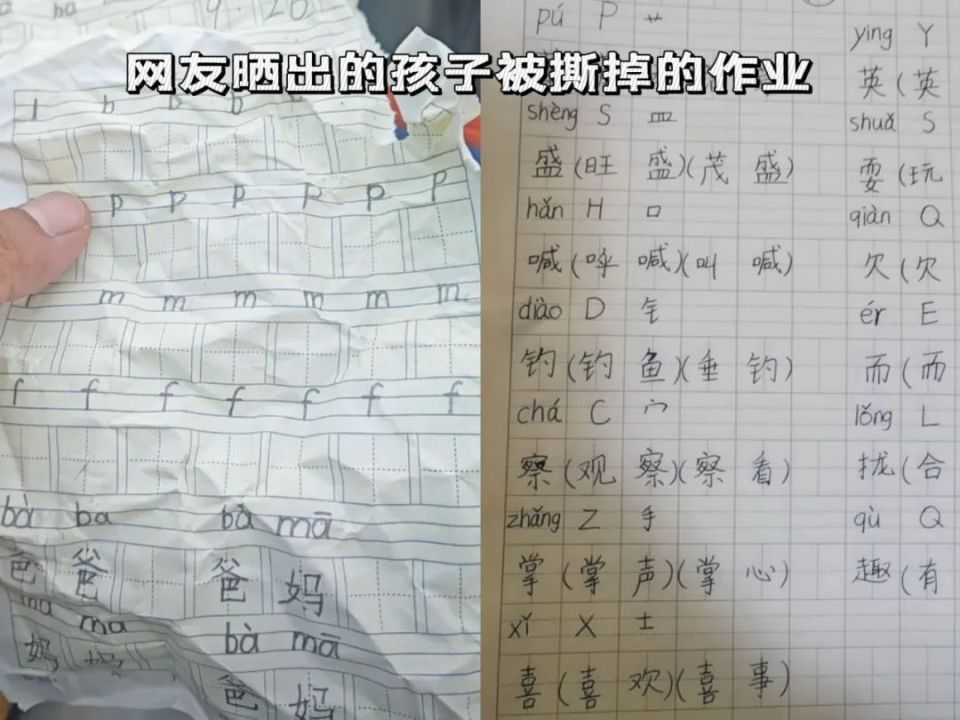 9.20
ba
网友晒出的孩子被撕掉的作业
b b b
p p p p p p
m m m m m m
f f f f f f f
bà ba bà mā
爸 爸 爸 妈
ma ma
bà mā
妈 妈
爸 妈
pú P 艹
shèng S 皿
盛(旺 盛)(茂 盛)
hǎn H 口
喊(呼 喊)(叫 喊)
diào D 钅
钓(钓 鱼)(垂 钓)
chá C 宀
察(观 察)(察 看)
zhǎng Z 手
掌(掌 声)(掌 心)
xǐ X 士
喜(喜 欢)(喜 事)
ying Y
英(英
shuǎ S
耍(玩
qiàn Q
欠(欠
ér E
而(而
lǒng L
拢(合
qù Q
趣(有